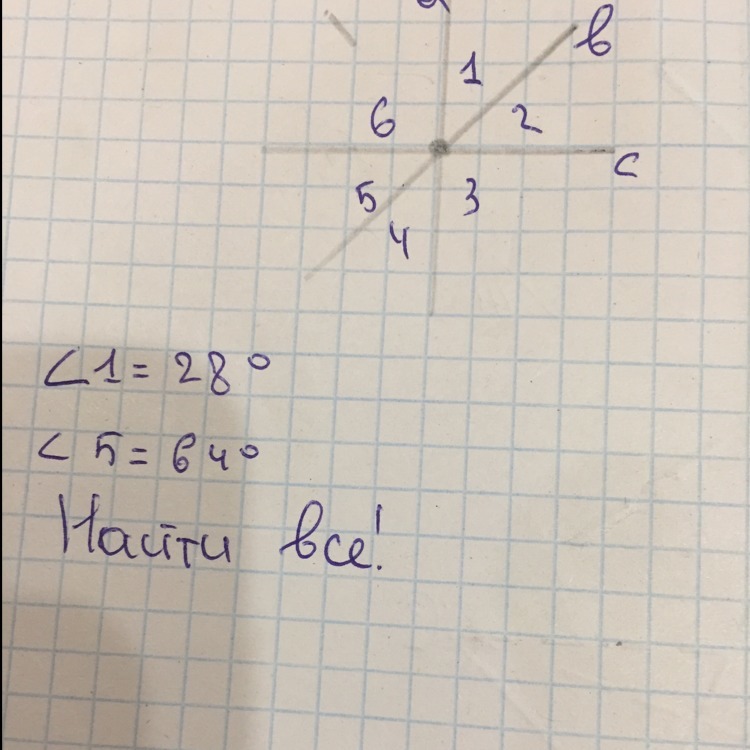 a
b
1
6
2
c
5
3
4
∠1 = 28°
∠5 = 64°
Найти все!